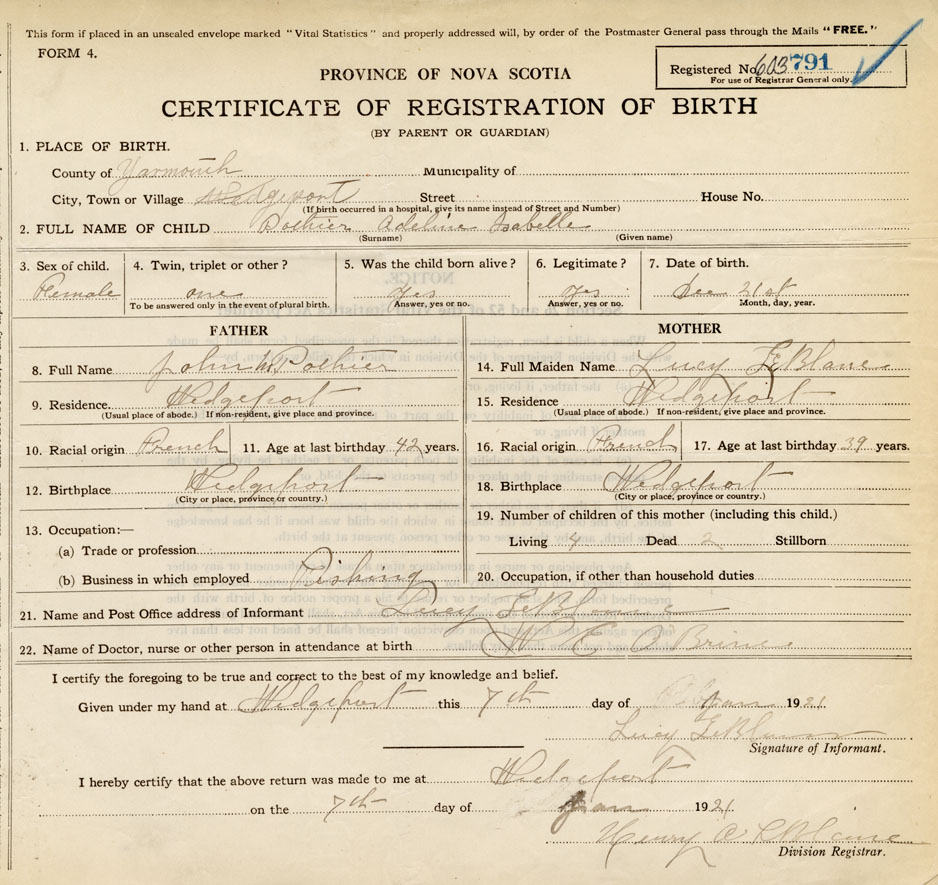 This form if placed in an unsealed envelope marked "Vital Statistics" and properly addressed will, by order of the Postmaster General pass through the Mails "FREE."
FORM 4.
Registered No. 603 791
For use of Registrar General only.
PROVINCE OF NOVA SCOTIA
CERTIFICATE OF REGISTRATION OF BIRTH
(BY PARENT OR GUARDIAN)
1. PLACE OF BIRTH.
County of Yarmouth Municipality of
City, Town or Village Wedgeport Street House No.
(If birth occurred in a hospital, give its name instead of Street and Number)
2. FULL NAME OF CHILD Pothier Adeline Isabelle
(Surname) (Given name)
3. Sex of child. 4. Twin, triplet or other? 5. Was the child born alive? 6. Legitimate? 7. Date of birth.
Female one yes yes Dec 21st
To be answered only in the event of plural birth. Answer, yes or no. Answer, yes or no. Month, day, year.
FATHER MOTHER
8. Full Name John Pothier 14. Full Maiden Name Lucy LeBlanc
9. Residence. Wedgeport 15. Residence Wedgeport
(Usual place of abode.) If non-resident, give place and province. (Usual place of abode.) If non-resident, give place and province.
10. Racial origin French 11. Age at last birthday 42 years. 16. Racial origin French 17. Age at last birthday 39 years.
12. Birthplace Wedgeport 18. Birthplace Wedgeport
(City or place, province or country.) (City or place, province or country.)
13. Occupation:— 19. Number of children of this mother (including this child.)
(a) Trade or profession Living 4 Dead 2 Stillborn
(b) Business in which employed Fishing 20. Occupation, if other than household duties
21. Name and Post Office address of Informant Lucy LeBlanc
22. Name of Doctor, nurse or other person in attendance at birth W C O'Brine
I certify the foregoing to be true and correct to the best of my knowledge and belief.
Given under my hand at Wedgeport this 7th day of Jan 1921
Lucy LeBlanc
Signature of Informant.
I hereby certify that the above return was made to me at Wedgeport
on the 7th day of Jan 1921
Henry A LeBlanc
Division Registrar.